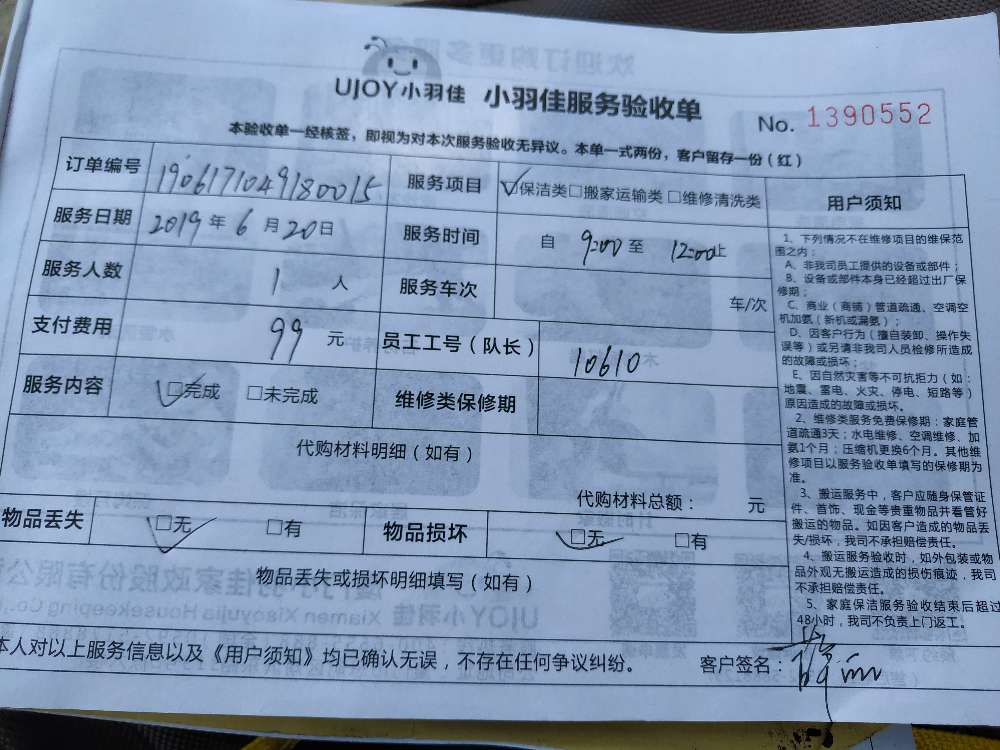 UJOY小羽佳 小羽佳服务验收单
No. 1390552
本验收单一经核签，即视为对本次服务验收无异议。本单一式两份，客户留存一份（红）
订单编号 1906171049180015 服务项目 ✓保洁类□搬家运输类□维修清洗类
服务日期 2019年6月20日 服务时间 自 9:00 至 12:00止
服务人数 1 人 服务车次 车/次
支付费用 99 元 员工工号（队长） 10610
服务内容 □完成 □未完成 维修类保修期
代购材料明细（如有）
代购材料总额： 元
物品丢失 □无 □有 物品损坏 □无 □有
物品丢失或损坏明细填写（如有）
本人对以上服务信息以及《用户须知》均已确认无误，不存在任何争议纠纷。 客户签名：
用户须知
1、下列情况不在维修项目的维保范
围之内：
A、非我司员工提供的设备或部件；
B、设备或部件本身已经超过出厂保
修期；
C、商业（商铺）管道疏通、空调空
机加氨（新机或漏氨）；
D、因客户行为（擅自装卸、操作失
误等）或另请非我司人员检修所造成
的故障或损坏；
E、因自然灾害等不可抗拒力（如：
地震、雷电、火灾、停电、短路等）
原因造成的故障或损坏。
2、维修类服务免费保修期：家庭管
道疏通3天；水电维修、空调维修、加
氨1个月；压缩机更换6个月。其他维
修项目以服务验收单填写的保修期为
准。
3、搬运服务中，客户应随身保管证
件、首饰、现金等贵重物品并看管好
搬运的物品。如因客户造成的物品丢
失/损坏，我司不承担赔偿责任。
4、搬运服务验收时，如外包装或物
品外观无搬运造成的损伤痕迹，我司
不承担赔偿责任。
5、家庭保洁服务验收结束后超过
48小时，我司不负责上门返工。